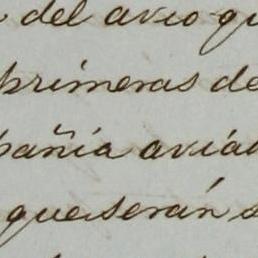 del avio qu
primeras de
pañia aviad
que serán s